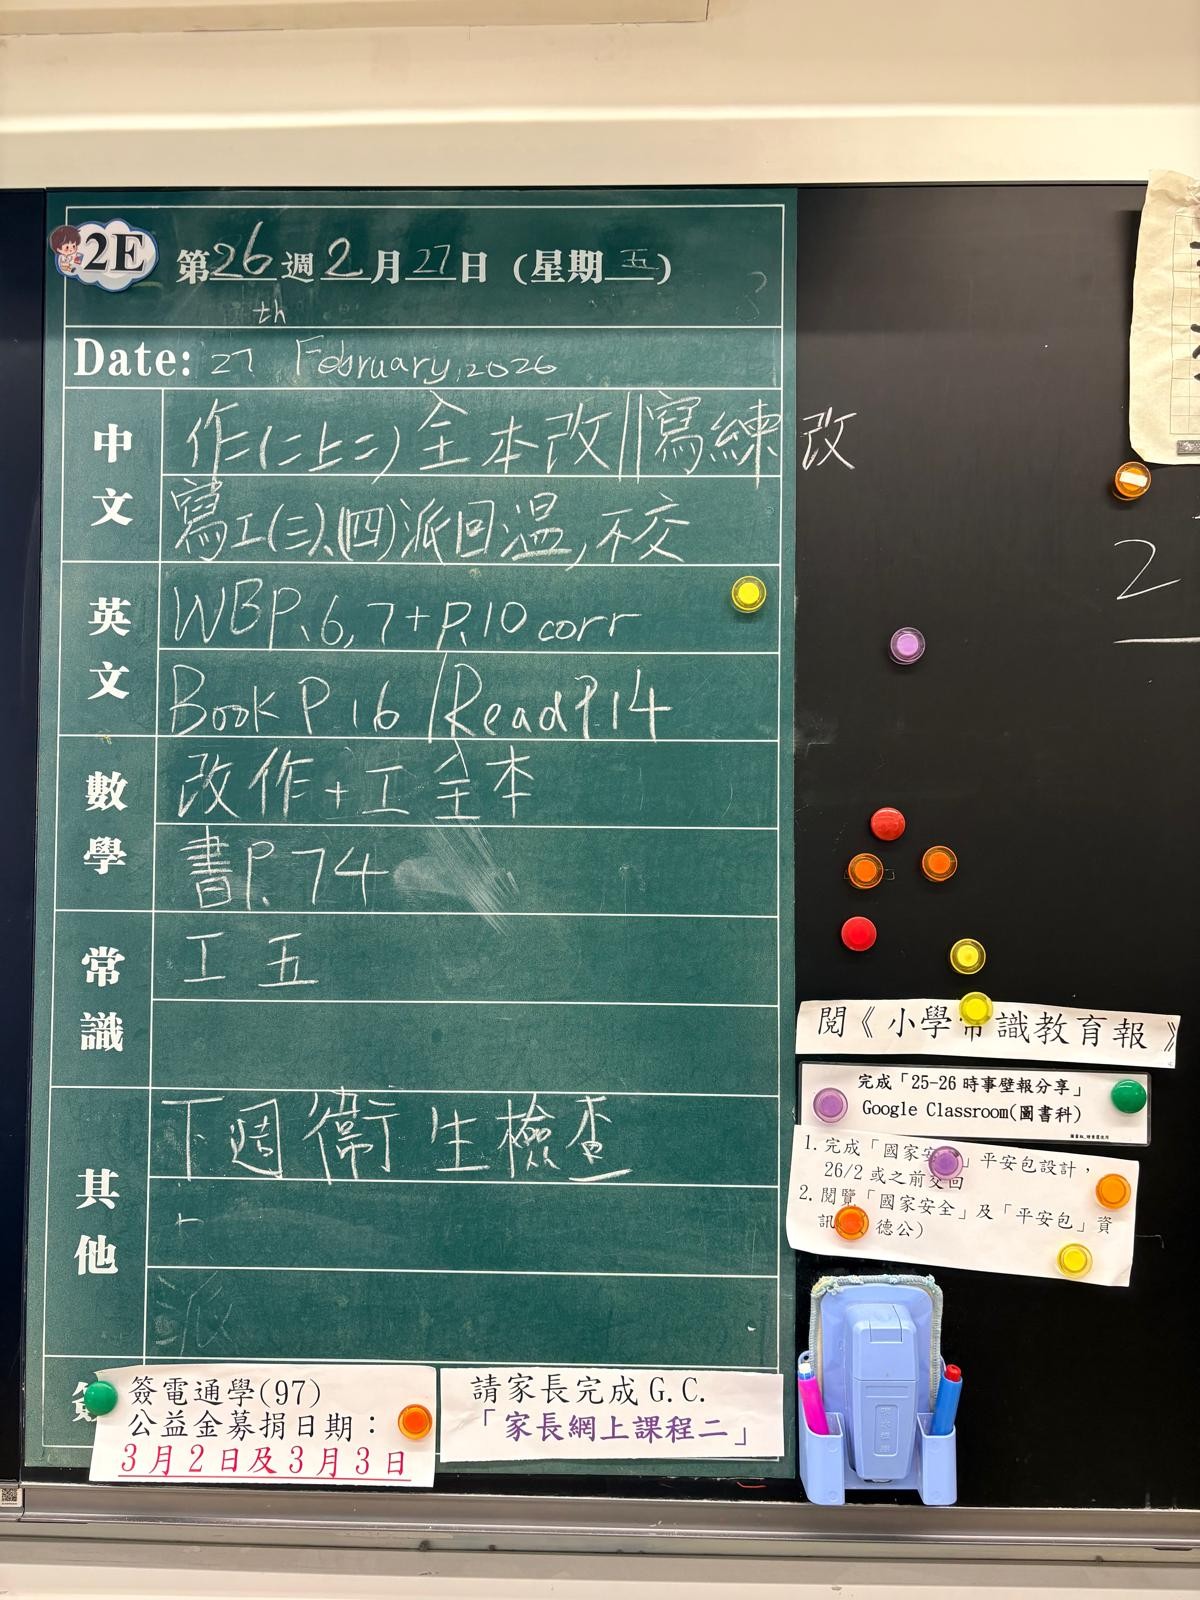 2E 第26週2月27日(星期五)
th
Date: 27 February, 2026
中文
作(二上二)全本改||寫練改
寫工(三)、(四)派回溫,不交
英文
WBP.6,7+P.10 corr
Book P.16 / Read P.14
數學
改作+工全本
書P.74
常識
工五
其他
下週衞生檢查
派
簽
簽電通學(97)
公益金募捐日期:
3月2日及3月3日
請家長完成G.C.
「家長網上課程二」
2
閱《小學常識教育報》
完成「25-26時事壁報分享」
Google Classroom(圖書科)
1. 完成「國家安 」平安包設計,
26/2或之前交回
2. 閱覽「國家安全」及「平安包」資
訊 德公)